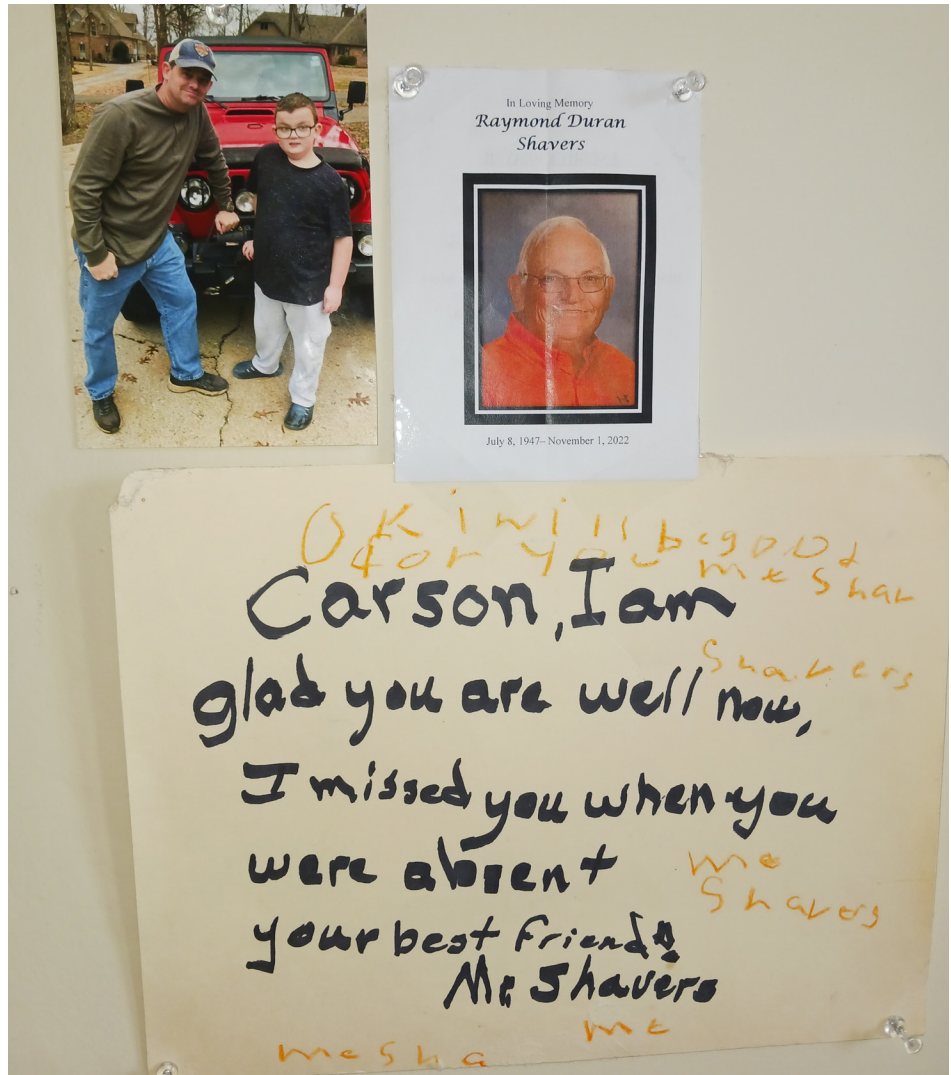 In Loving Memory
Raymond Duran
Shavers
July 8, 1947– November 1, 2022
OK i will be good
for you me Shav
Carson, I am
Shavers
glad you are well now,
I missed you when you
were absent
me
Shavers
your best friend
Mr Shavers
me
me Sha